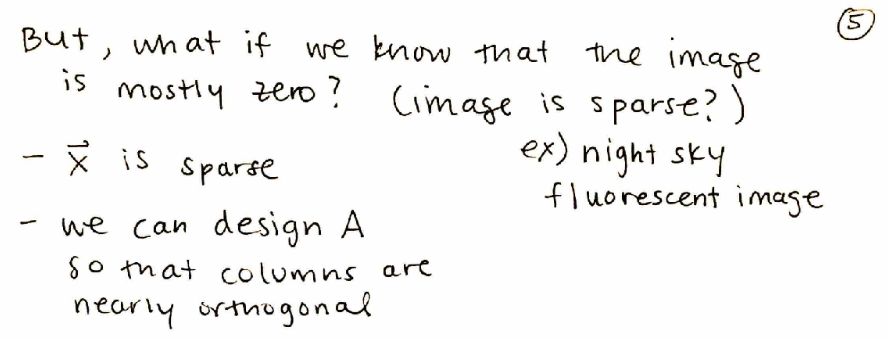 ⑤
But, what if we know that the image
is mostly zero? (image is sparse?)
- x⃗ is sparse
ex) night sky
fluorescent image
- we can design A
so that columns are
nearly orthogonal